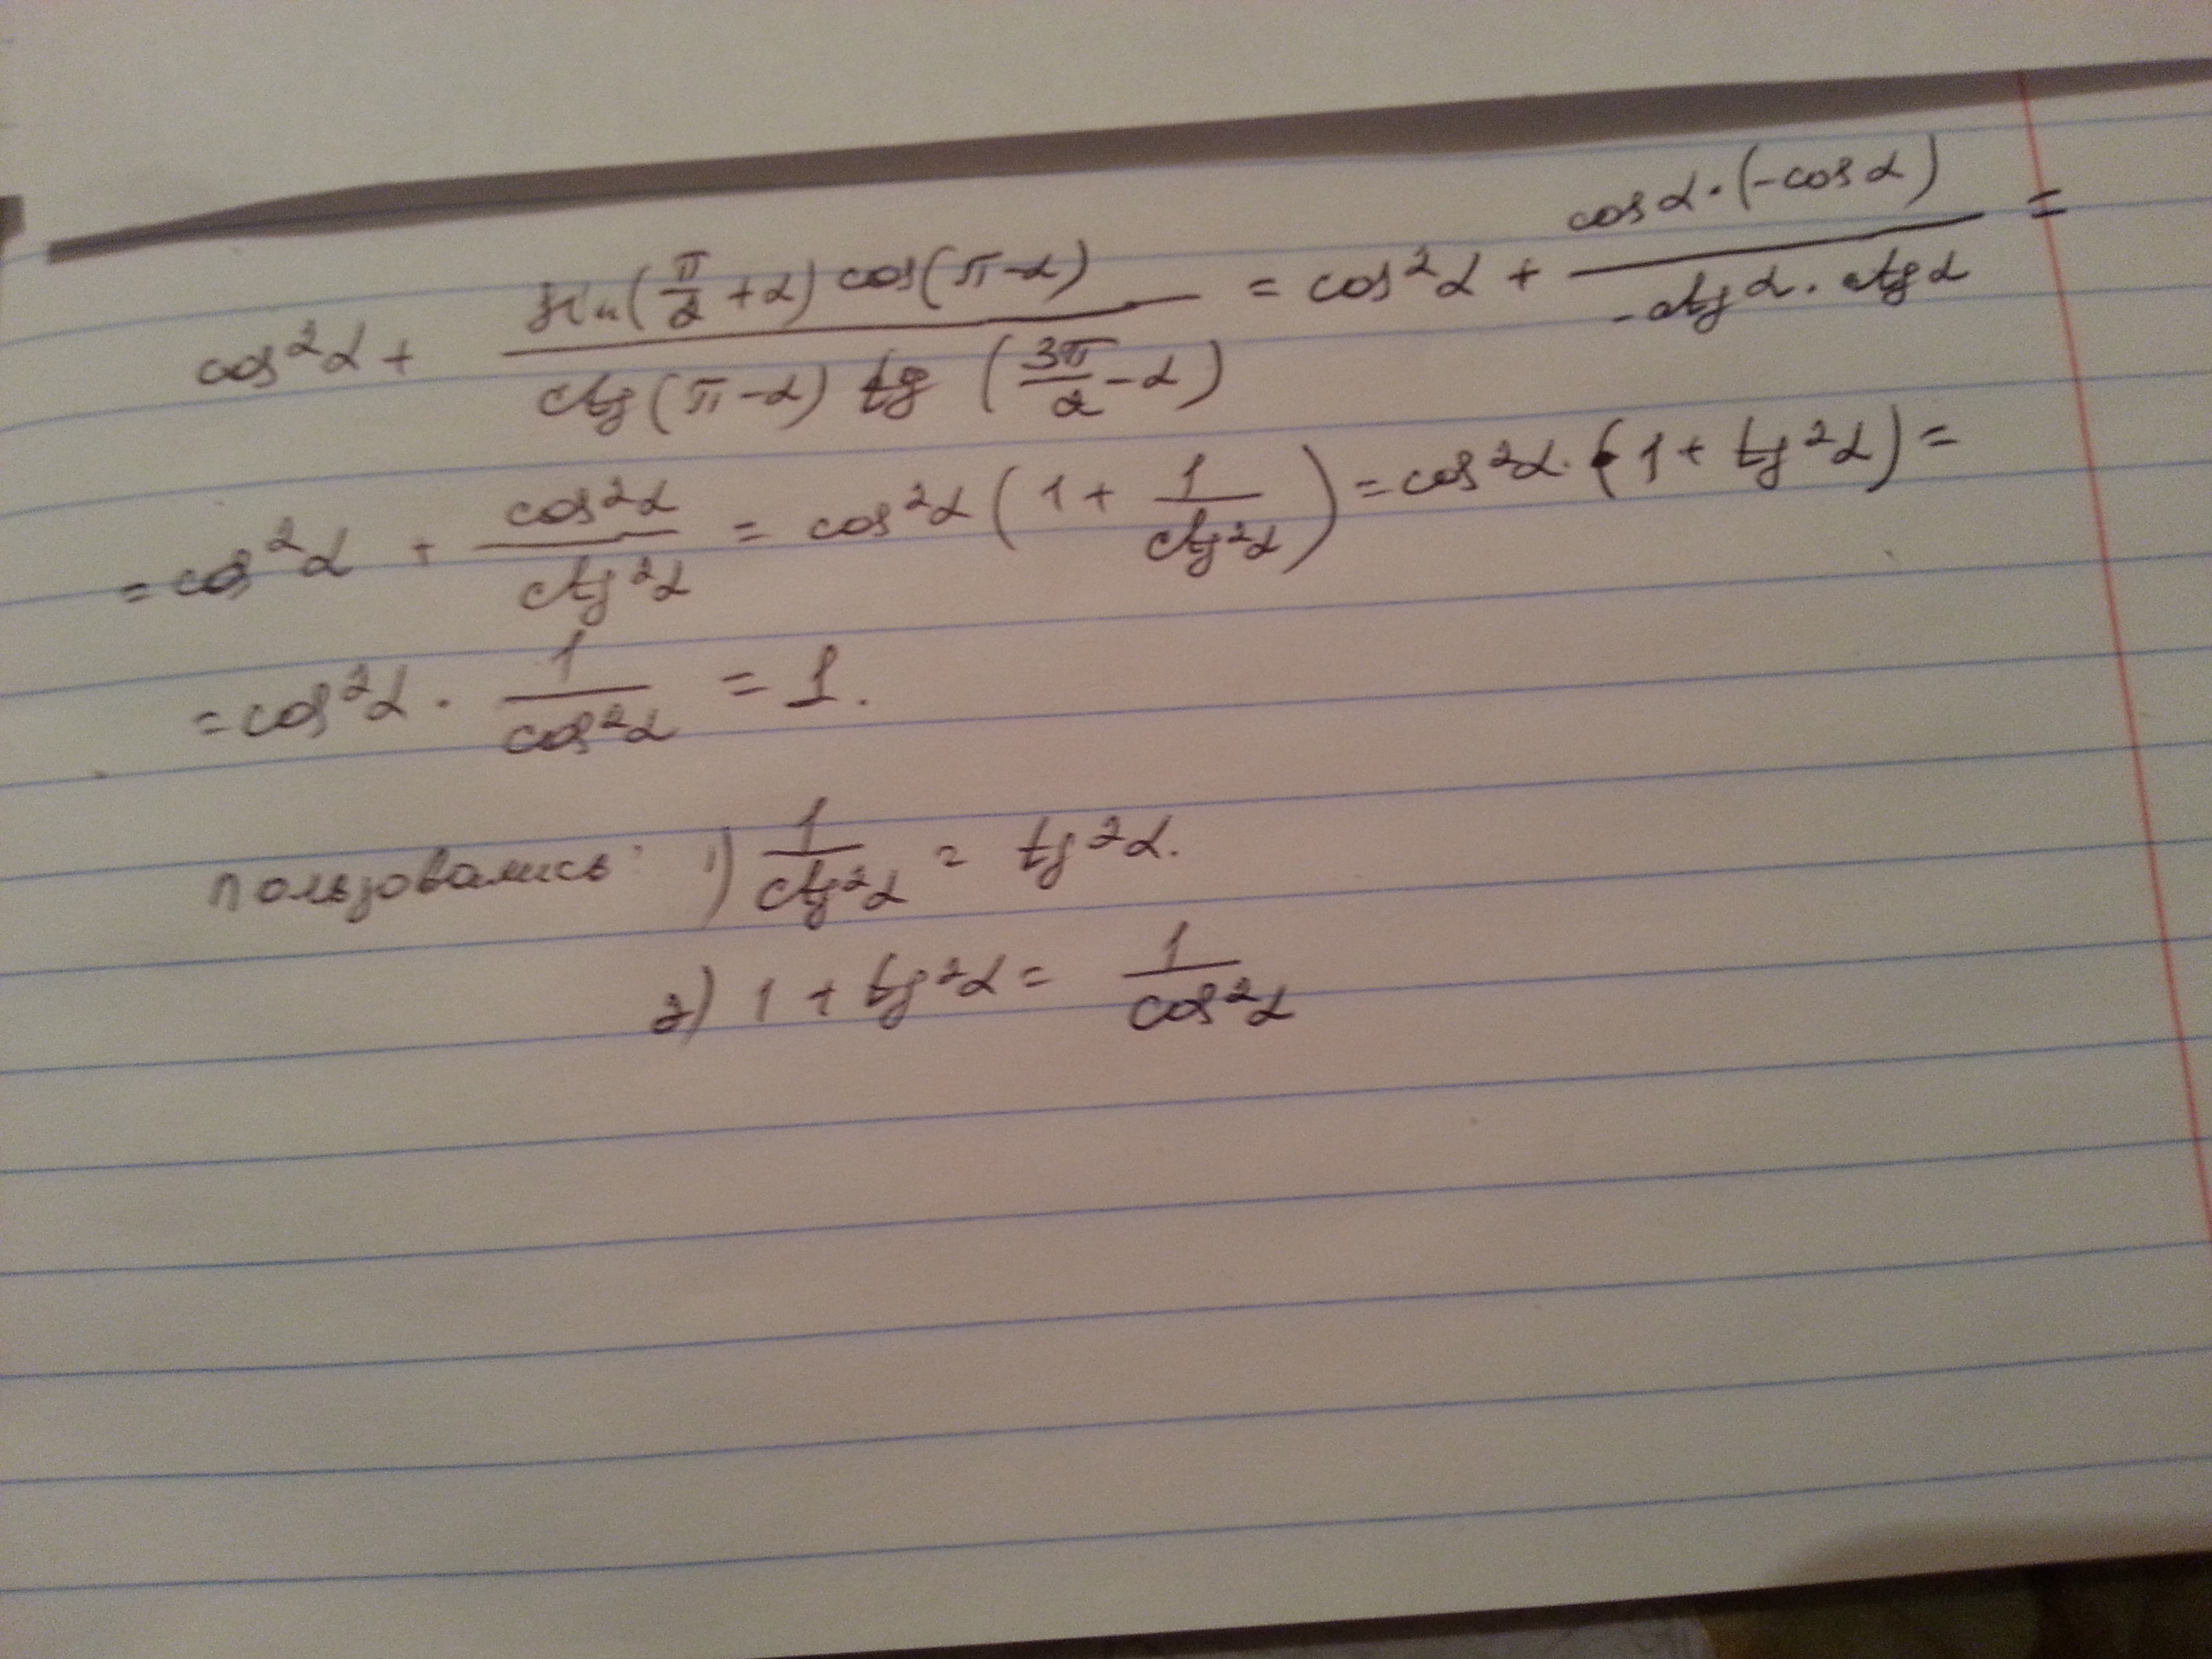 cos²α + sin(π/2 + α) cos(π - α) / ctg(π - α) tg(3π/2 - α) = cos²α + cosα · (-cosα) / -ctgα · ctgα =
= cos²α + cos²α / ctg²α = cos²α (1 + 1 / ctg²α) = cos²α · (1 + tg²α) =
= cos²α · 1 / cos²α = 1.
Пользовались: 1) 1 / ctg²α = tg²α.
2) 1 + tg²α = 1 / cos²α